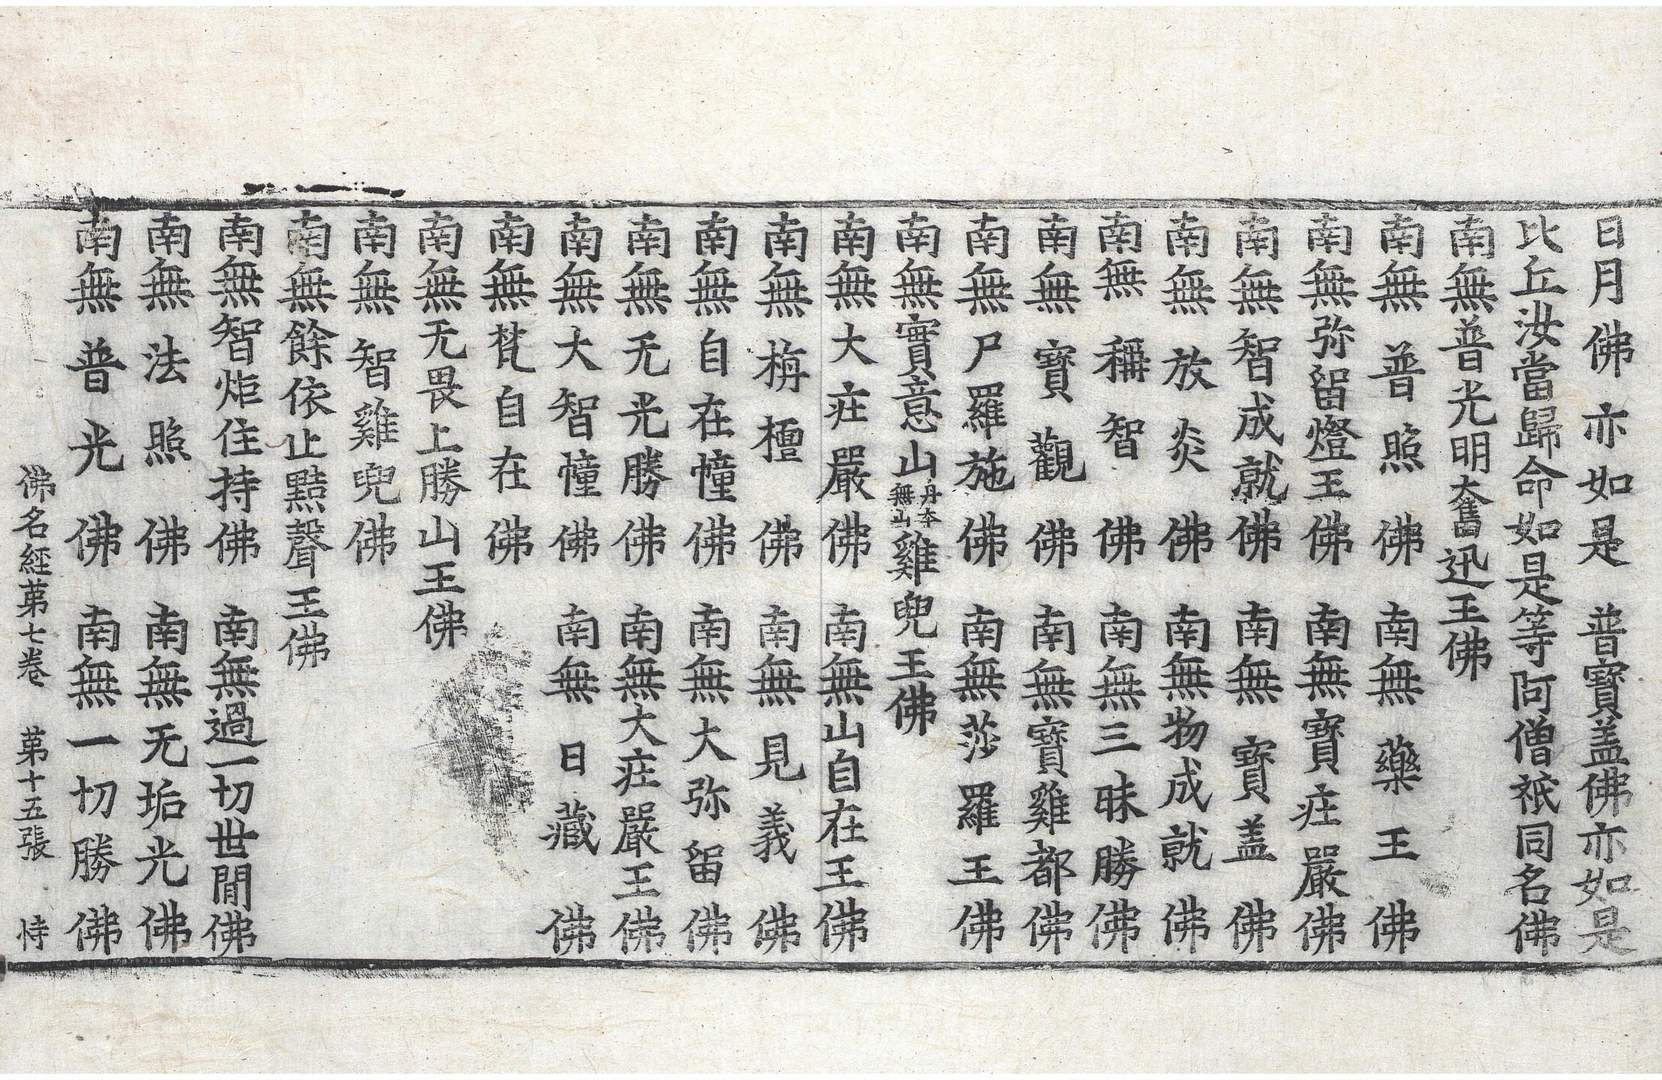 日月佛亦如是 普寶盖佛亦如是
比丘汝當歸命如是等阿僧祇同名佛
南無普光明奮迅王佛
南無普照佛 南無藥王佛
南無弥留燈王佛 南無寶庄嚴佛
南無智成就佛 南無寶盖佛
南無放炎佛 南無物成就佛
南無稱智佛 南無三昧勝佛
南無寶觀佛 南無寶雞都佛
南無尸羅施佛 南無莎羅王佛
南無寶意山丹本無山雞兜王佛
南無大庄嚴佛 南無山自在王佛
南無栴檀佛 南無見義佛
南無自在幢佛 南無大弥留佛
南無无光勝佛 南無大庄嚴王佛
南無大智幢佛 南無日藏佛
南無梵自在佛
南無无畏上勝山王佛
南無智雞兜佛
南無餘依止黠聲王佛
南無智炬住持佛 南無過一切世間佛
南無法照佛 南無无垢光佛
南無普光佛 南無一切勝佛
佛名經苐七卷 苐十五張 恃